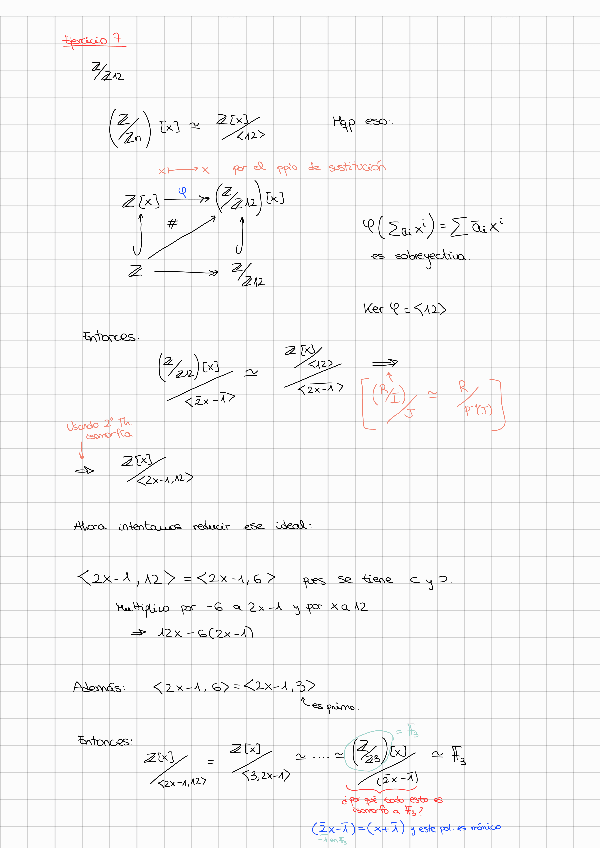 Ejercicio 7
ℤ/ℤ12
(ℤ/ℤn)[x] ≃ ℤ[x]/<12> Hap eso:
x ↦ x por el ppio de sustitución
ℤ[x] φ (ℤ/ℤ12)[x]
#
ℤ ℤ/ℤ12
φ(Σ aᵢxⁱ) = Σ āᵢxⁱ
es sobreyectiva.
Ker φ = <12>
Entonces:
(ℤ/ℤ12)[x]/<2̄x-1̄> ≃ ℤ[x]/<12>/<2x-1> ⟹
[(R/I)/J ≃ R/p⁻¹(J)]
Usando 2º Th.
isomorfía
⟹ ℤ[x]/<2x-1,12>
Ahora intentamos reducir ese ideal:
<2x-1,12> = <2x-1,6> pues se tiene ⊂ y ⊃.
Multiplico por -6 a 2x-1 y por x a 12
⇒ 12x - 6(2x-1)
Además: <2x-1,6> = <2x-1,3>
es primo.
Entonces:
= 𝔽₃
ℤ[x]/<2x-1,12> = ℤ[x]/<3,2x-1> ≃ .... ≃ (ℤ/ℤ3)[x]/(2̄x-1̄) ≃ 𝔽₃
¿por qué todo esto es
isomorfo a 𝔽₃?
(2̄x-1̄) = (x+1̄) y este pol. es mónico
-1 en 𝔽₃